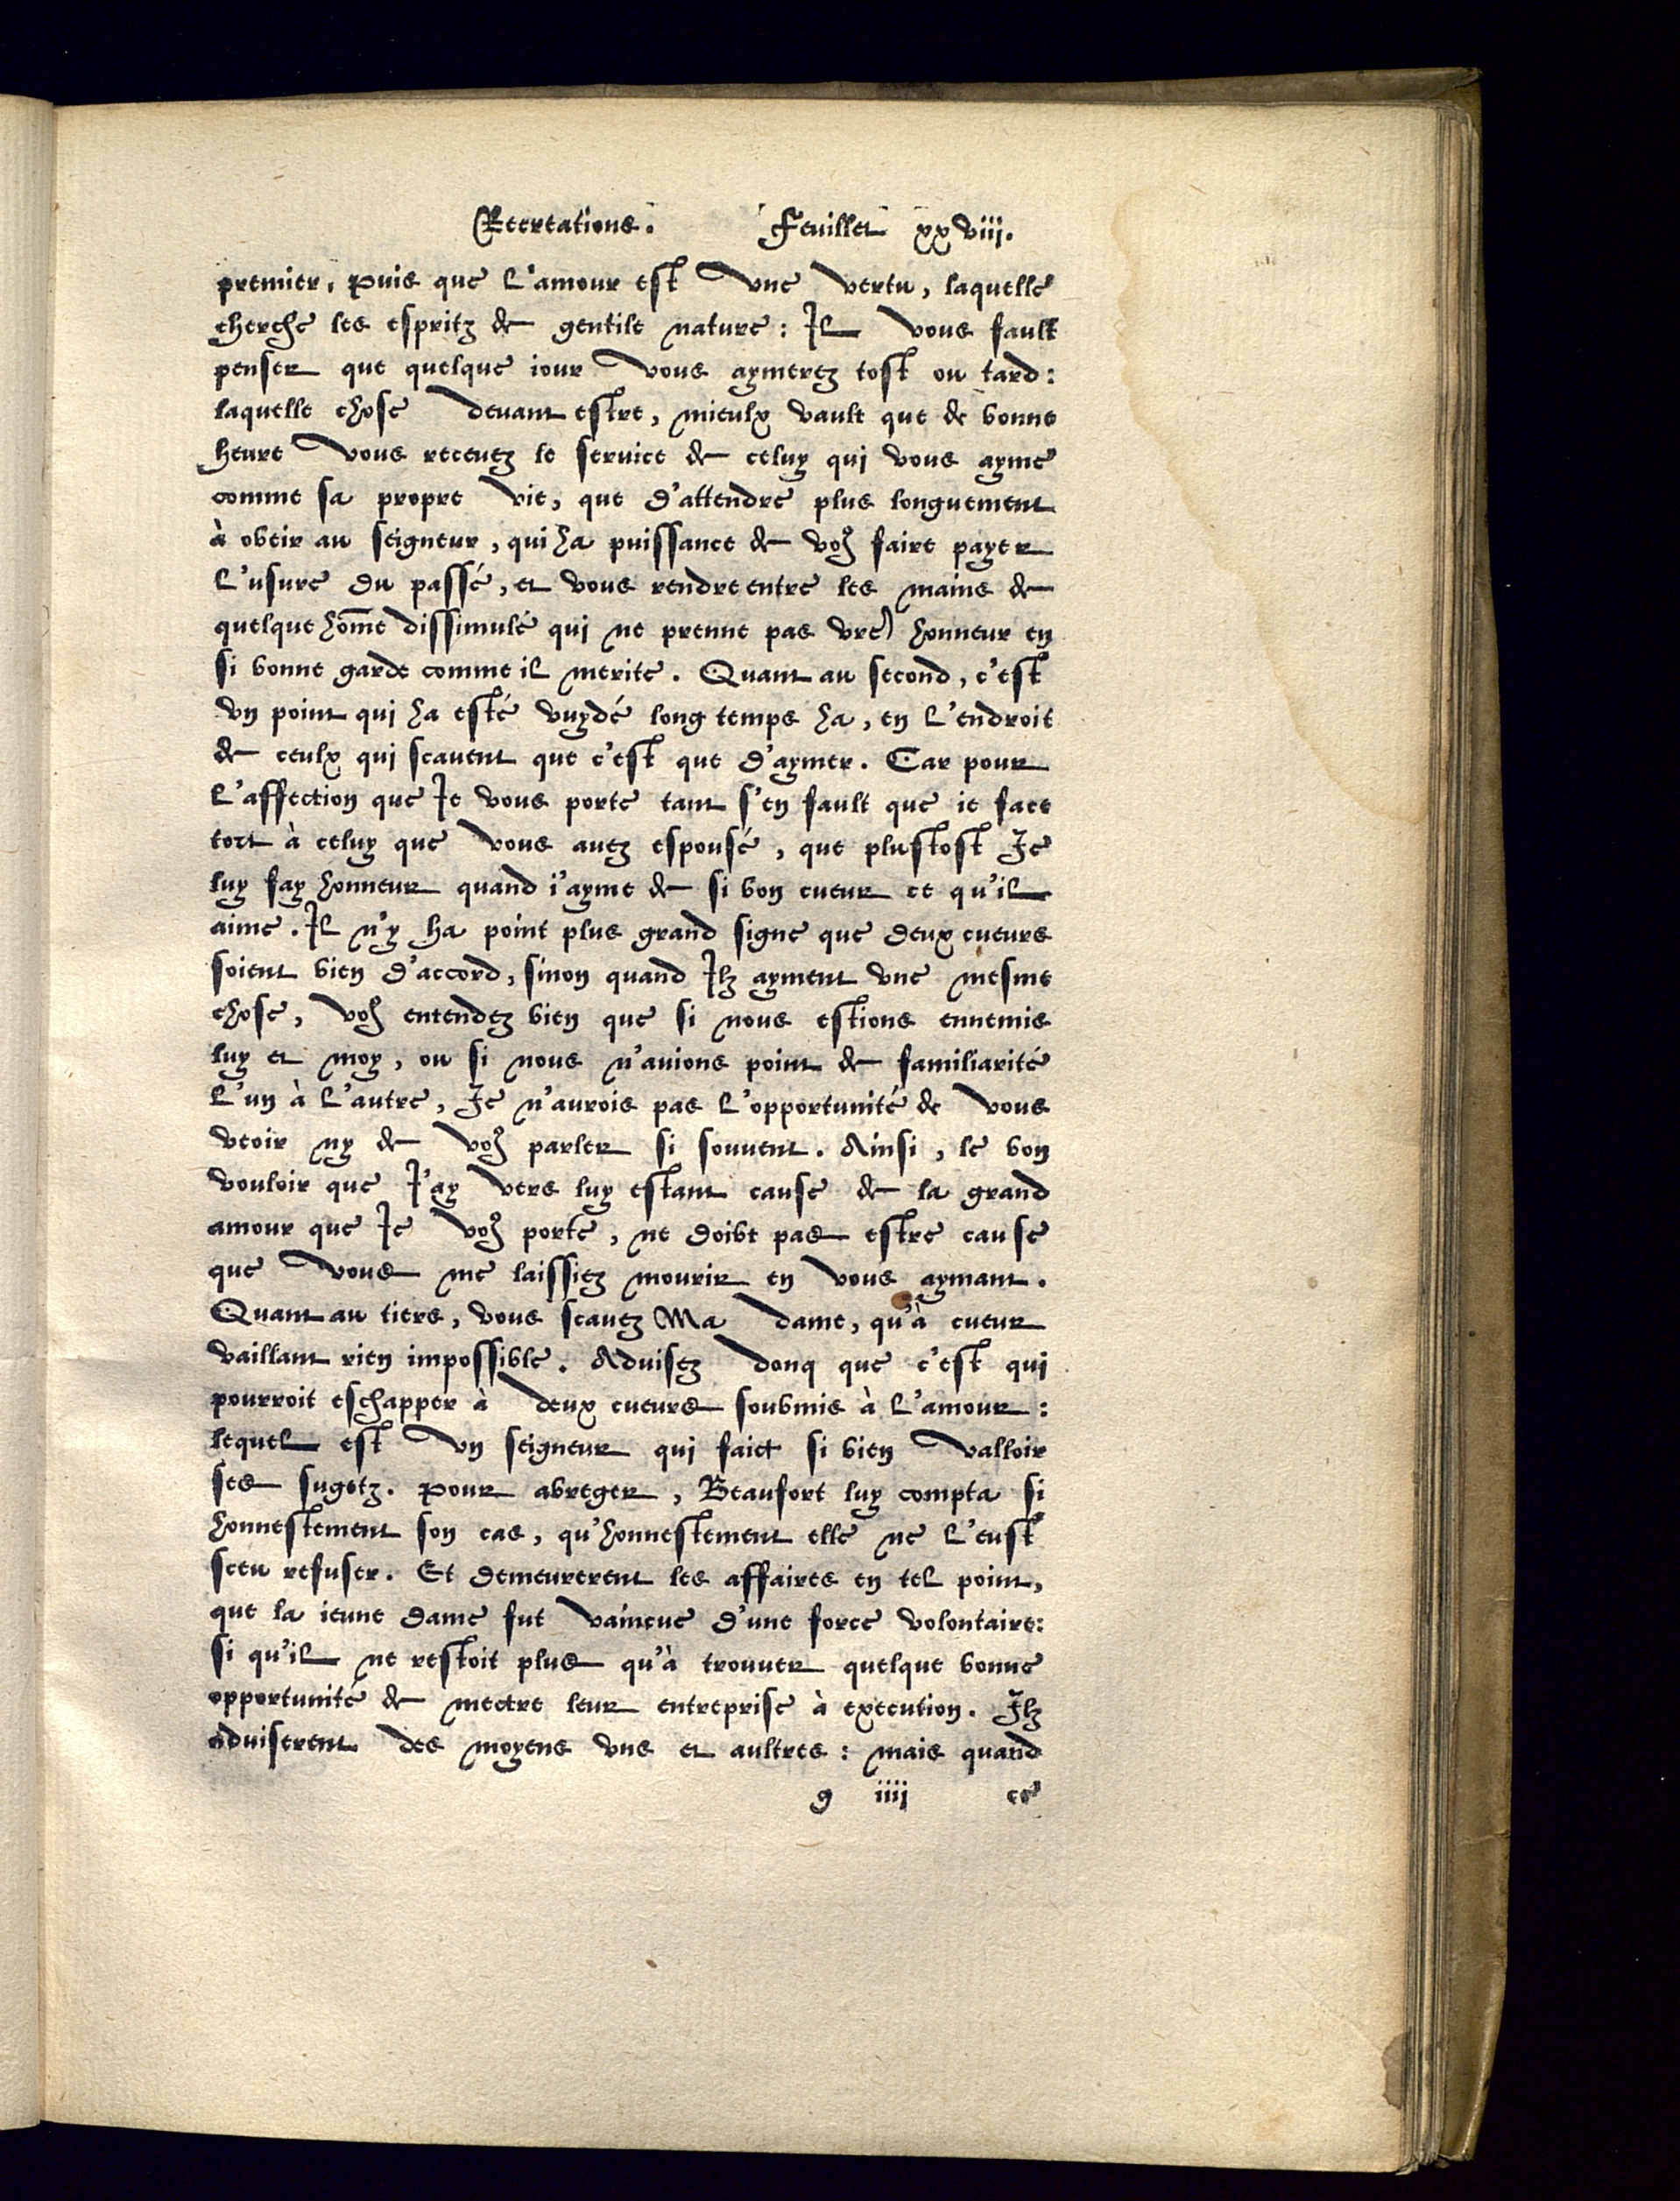 Recreations. Feuillet xxviij.
premier, Puis que l'amour est vne vertu, laquelle
cherche les espritz de gentile nature: Il vous fault
penser que quelque iour vous aymerez tost ou tard:
laquelle chose deuant estre, mieulx vault que de bonne
heure vous receuez le seruice de celuy qui vous ayme
comme sa propre vie, que d'attendre plus longuement
à obeir au seigneur, qui ha puissance de vo⁹ faire payer
l'usure du passé, et vous rendre entre les mains de
quelque hōme dissimulé qui ne prenne pas vrē honneur en
si bonne garde comme il merite. Quant au second, c'est
vn point qui ha esté vuydé long temps ha, en l'endroit
de ceulx qui scauent que c'est que d'aymer. Car pour
l'affection que Ie vous porte tant s'en fault que ie face
tort à celuy que vous auez espousé, que plustost Ie
luy fay honneur quand i'ayme de si bon cueur ce qu'il
aime. Il n'y ha point plus grand signe que deux cueurs
soient bien d'accord, sinon quand Ilz ayment vne mesme
chose, vo⁹ entendez bien que si nous estions ennemis
luy et moy, ou si nous n'auions point de familiarité
l'un à l'autre, Ie n'aurois pas l'opportunité de vous
veoir ny de vo⁹ parler si souuent. Ainsi, le bon
vouloir que I'ay vers luy estant cause de la grand
amour que Ie vo⁹ porte, ne doibt pas estre cause
que vous me laissiez mourir en vous aymant.
Quant au tiers, vous scauez Ma dame, qu'à cueur
vaillant rien impossible. Aduisez donq que c'est qui
pourroit eschapper à deux cueurs soubmis à l'amour:
lequel est vn seigneur qui faict si bien valloir
ses sugetz. Pour abreger, Beaufort luy compta si
honnestement son cas, qu'honnestement elle ne l'eust
sceu refuser. Et demeurerent les affaires en tel point,
que la ieune dame fut vaincue d'une force volontaire:
si qu'il ne restoit plus qu'à trouuer quelque bonne
opportunité de mectre leur entreprise à execution. Ilz
aduiserent des moyens vns et aultres: mais quand
g iiij ce